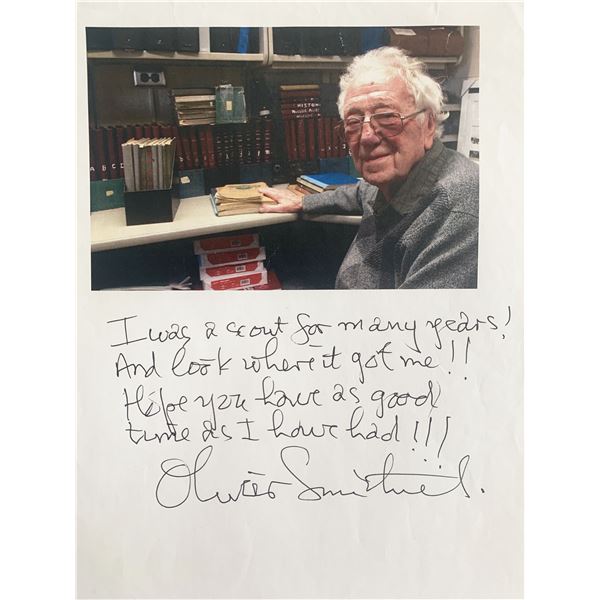 HISTO
A B C D
I was a scout for many years!
And look where it got me!!
Hope you have as good
time as I have had!!!
Oliver Smithies.